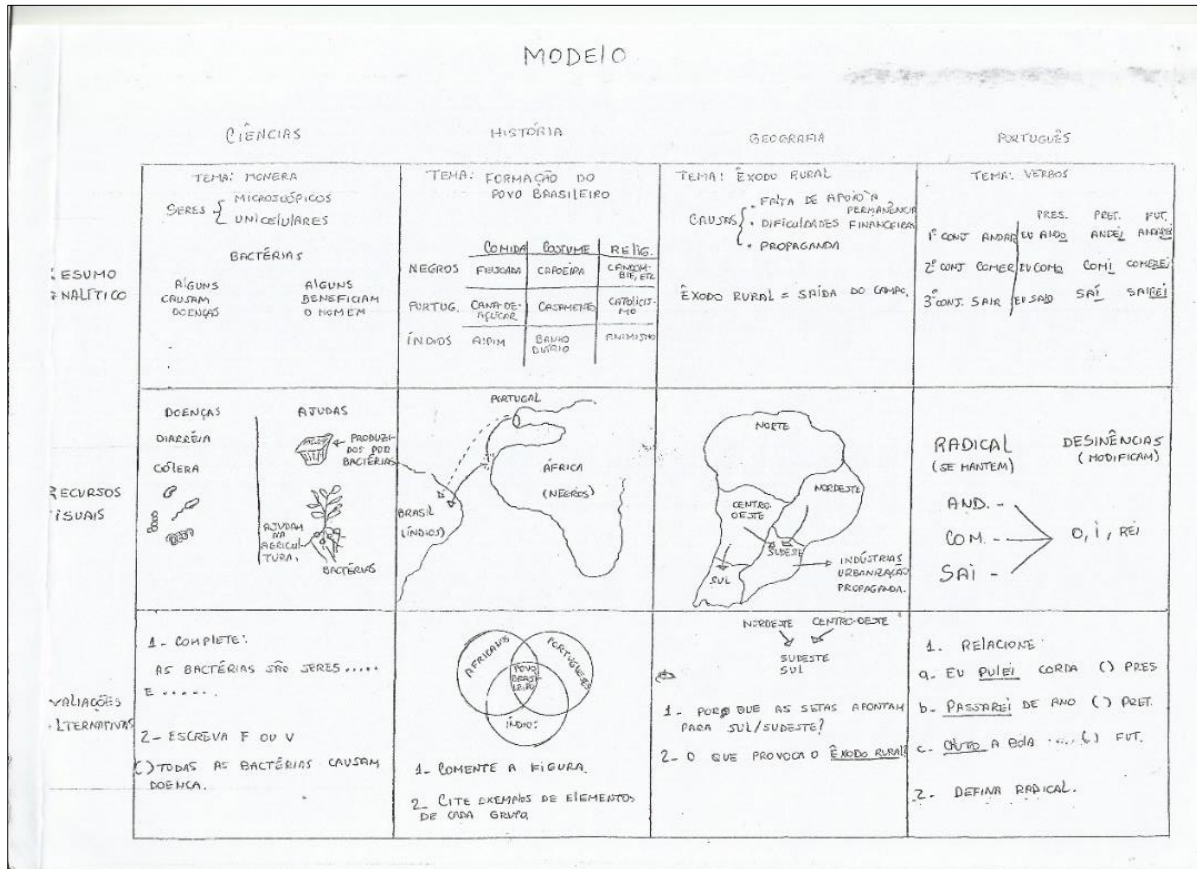 MODELO
CIÊNCIAS
HISTÓRIA
GEOGRAFIA
PORTUGUÊS
ESUMO
NALÍTICO
TEMA: MONERA
SERES
MICROSCÓPICOS
UNICELULARES
BACTÉRIAS
ALGUNS
CAUSAM
DOENÇAS
ALGUNS
BENEFICIAM
O HOMEM
TEMA: FORMAÇÃO DO
POVO BRASILEIRO
COMIDA COSTUME RELIG.
NEGROS FEIJOADA CAPOEIRA CANDOM-
BLÉ, ETC
PORTUG. CANA-DE- CASAMENTO CATOLICIS-
AÇÚCAR MO
ÍNDIOS AIPIM BANHO ANIMISMO
DIÁRIO
TEMA: ÊXODO RURAL
CAUSAS
. FALTA DE APOIO À
PERMANÊNCIA
. DIFICULDADES FINANCEIRAS
. PROPAGANDA
ÊXODO RURAL = SAÍDA DO CAMPO.
TEMA: VERBOS
PRES. PRET. FUT.
1ª CONJ ANDAR EU ANDO ANDEI ANDAREI
2ª CONJ COMER EU COMO COMI COMEREI
3ª CONJ. SAIR EU SAIO SAÍ SAIREI
RECURSOS
ISUAIS
DOENÇAS
DIARRÉIA
CÓLERA
AJUDAS
PRODUZI-
DOS POR
BACTÉRIAS
AJUDAM
NA
AGRICUL-
TURA.
BACTÉRIAS
PORTUGAL
ÁFRICA
(NEGROS)
BRASIL
(ÍNDIOS)
NORTE
NORDESTE
CENTRO-
OESTE
SUDESTE
SUL
INDÚSTRIAS
URBANIZAÇÃO
PROPAGANDA.
RADICAL
(SE MANTEM)
DESINÊNCIAS
(MODIFICAM)
AND. -
COM. -
SAI -
O, I, REI
VALIAÇÕES
LTERNATIVAS
1- COMPLETE:
AS BACTÉRIAS SÃO SERES.....
E ......
2- ESCREVA F OU V
( ) TODAS AS BACTÉRIAS CAUSAM
DOENÇA.
AFRICANOS
PORTUGUESES
POVO
BRASI-
LEIRO
ÍNDIOS
1- COMENTE A FIGURA.
2- CITE EXEMPLOS DE ELEMENTOS
DE CADA GRUPO.
NORDESTE CENTRO-OESTE
SUDESTE
SUL
1- PORQ QUE AS SETAS APONTAM
PARA SUL/SUDESTE?
2- O QUE PROVOCA O ÊXODO RURAL?
1. RELACIONE:
a- EU PULEI CORDA ( ) PRES
b- PASSAREI DE ANO ( ) PRET.
c- A BOLA ..... ( ) FUT.
2- DEFINA RADICAL.